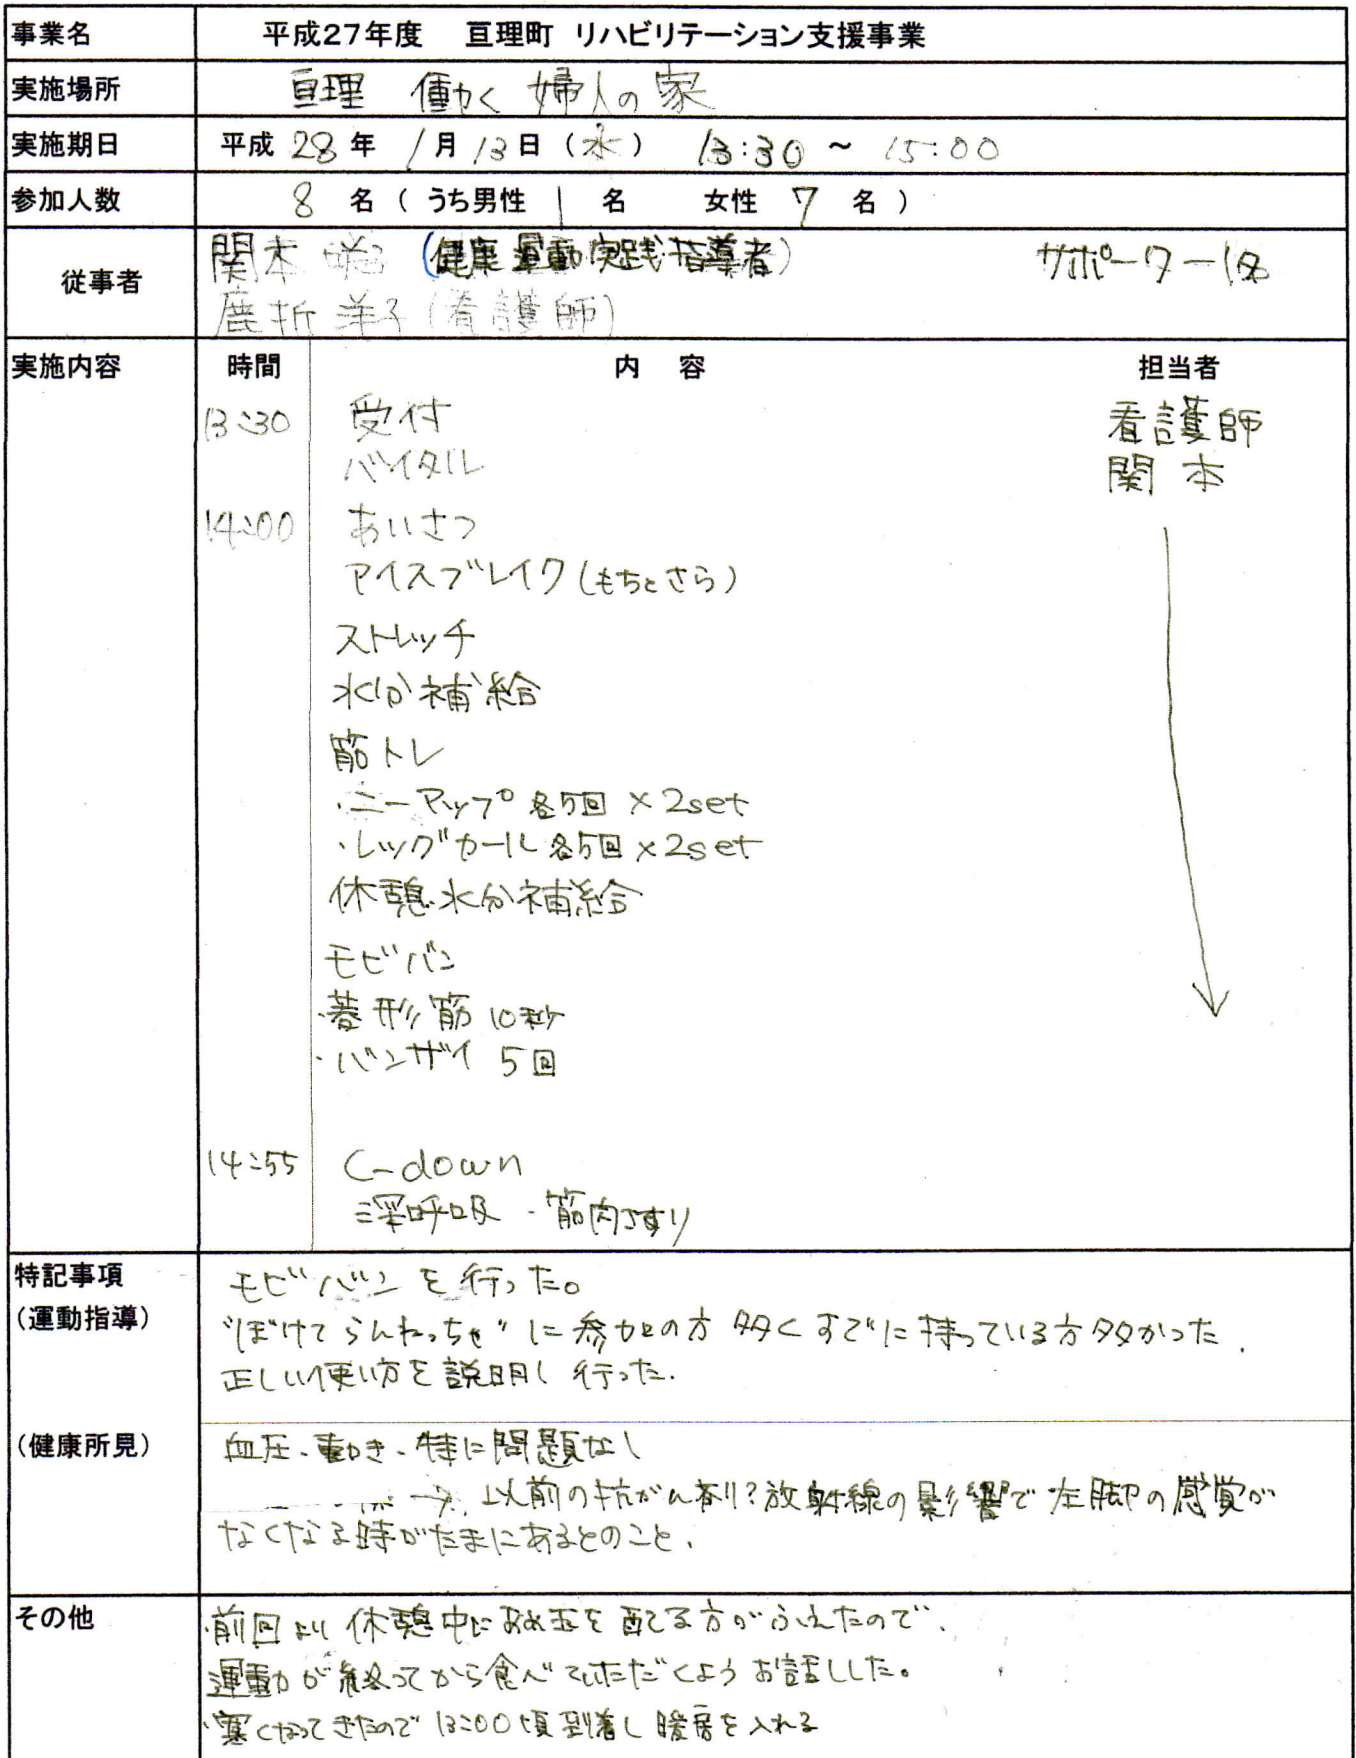 事業名 平成27年度 亘理町 リハビリテーション支援事業
実施場所 亘理 働く婦人の家
実施期日 平成 28 年 1 月 13 日 (水) 13:30 ~ 15:00
参加人数 8 名 ( うち男性 1 名 女性 7 名 )
従事者 関本 (健康運動実践指導者) サポーター1名
鹿折 洋子 (看護師)
実施内容 時間 内 容 担当者
13:30 受付 看護師
バイタル 関本
14:00 あいさつ
アイスブレイク(もちとさら)
ストレッチ
水分補給
筋トレ
・ニーアップ 各5回 × 2set
・レッグカール 各5回 × 2set
休憩・水分補給
モビバン
・菱形筋 10秒
・バンザイ 5回
14:55 C-down
深呼吸・筋肉さすり
特記事項 モビバンを行った。
(運動指導) "ぼけてらんねっちゃ"に参加の方多くすでに持っている方多かった.
正しい使い方を説明し行った.
(健康所見) 血圧、動き、特に問題なし
→ 以前の抗がん剤?放射線の影響で左脚の感覚が
なくなる時がたまにあるとのこと.
その他 ・前回より休憩中にあめ玉を配る方がふえたので、
運動が終ってから食べていただくようお話しした。
・寒くなってきたので 13:00頃到着し暖房を入れる